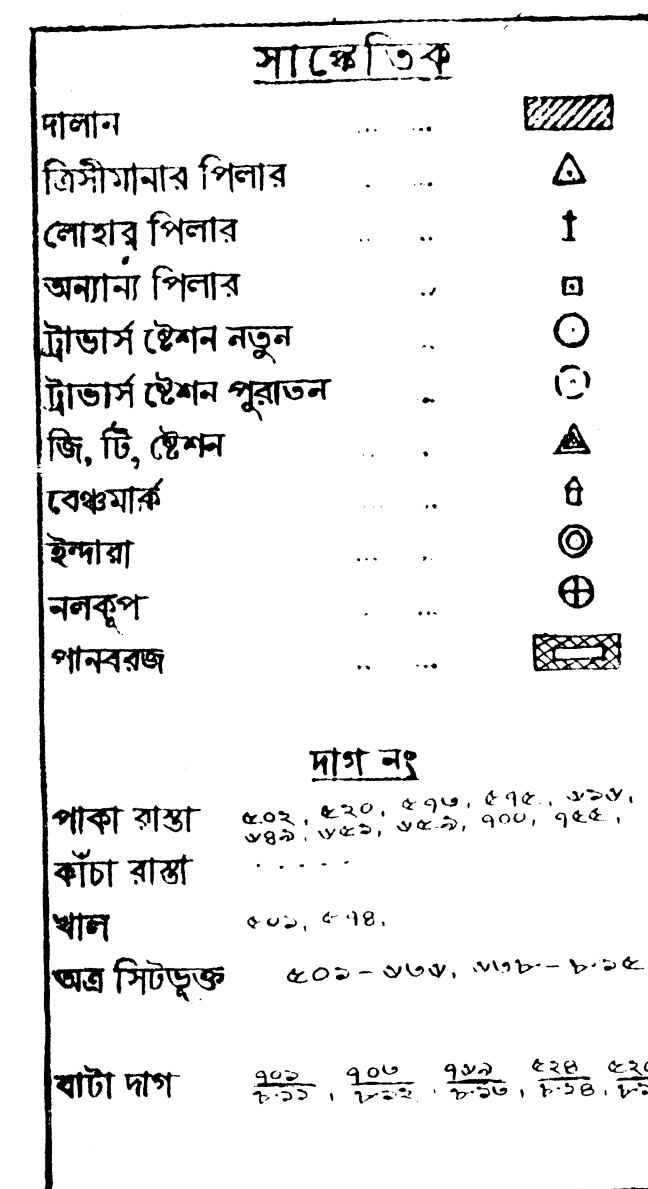 সাঙ্কেতিক
দালান ... ...
ত্রিসীমানার পিলার . ...
লোহার পিলার .. ..
অন্যান্য পিলার ..
ট্রাভার্স ষ্টেশন নতুন ..
ট্রাভার্স ষ্টেশন পুরাতন ..
জি, টি, ষ্টেশন .. .
বেঞ্চমার্ক ... ..
ইন্দারা ... .
নলকূপ . ...
পানবরজ .. ...
দাগ নং
পাকা রাস্তা ৫০২, ৫২০, ৫৭৩, ৫৭৫, ৬১৬,
৬৪৯, ৬৫১, ৬৫৯, ৭০০, ৭৫৫,
কাঁচা রাস্তা . . . . .
খাল ৫০১, ৫৭৪,
অত্র সিটভূক্ত ৫০১ - ৬৩৬, ৬৩৮ - ৮১৫
বাটা দাগ ৭০১/৮১১, ৭০৩/৮১২, ৭৬৯/৮১৩, ৫২৪/৮১৪,